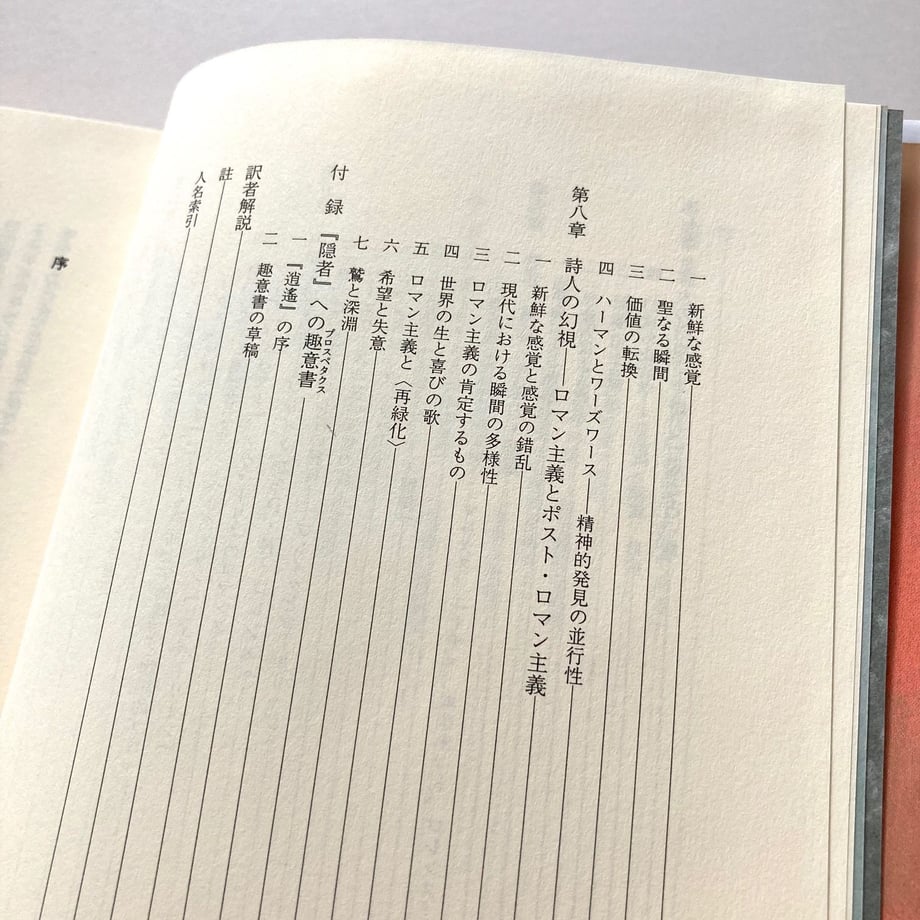 一 新鮮な感覚
二 聖なる瞬間
三 価値の転換
四 ハーマンとワーズワース——精神的発見の並行性
第八章 詩人の幻視——ロマン主義とポスト・ロマン主義
一 新鮮な感覚と感覚の錯乱
二 現代における瞬間の多様性
三 ロマン主義の肯定するもの
四 世界の生と喜びの歌
五 ロマン主義と〈再緑化〉
六 希望と失意
七 鷲と深淵
付録 『隠者』への趣意書
プロスペクタス
一 『逍遙』の序
二 趣意書の草稿
訳者解説
註
人名索引
序